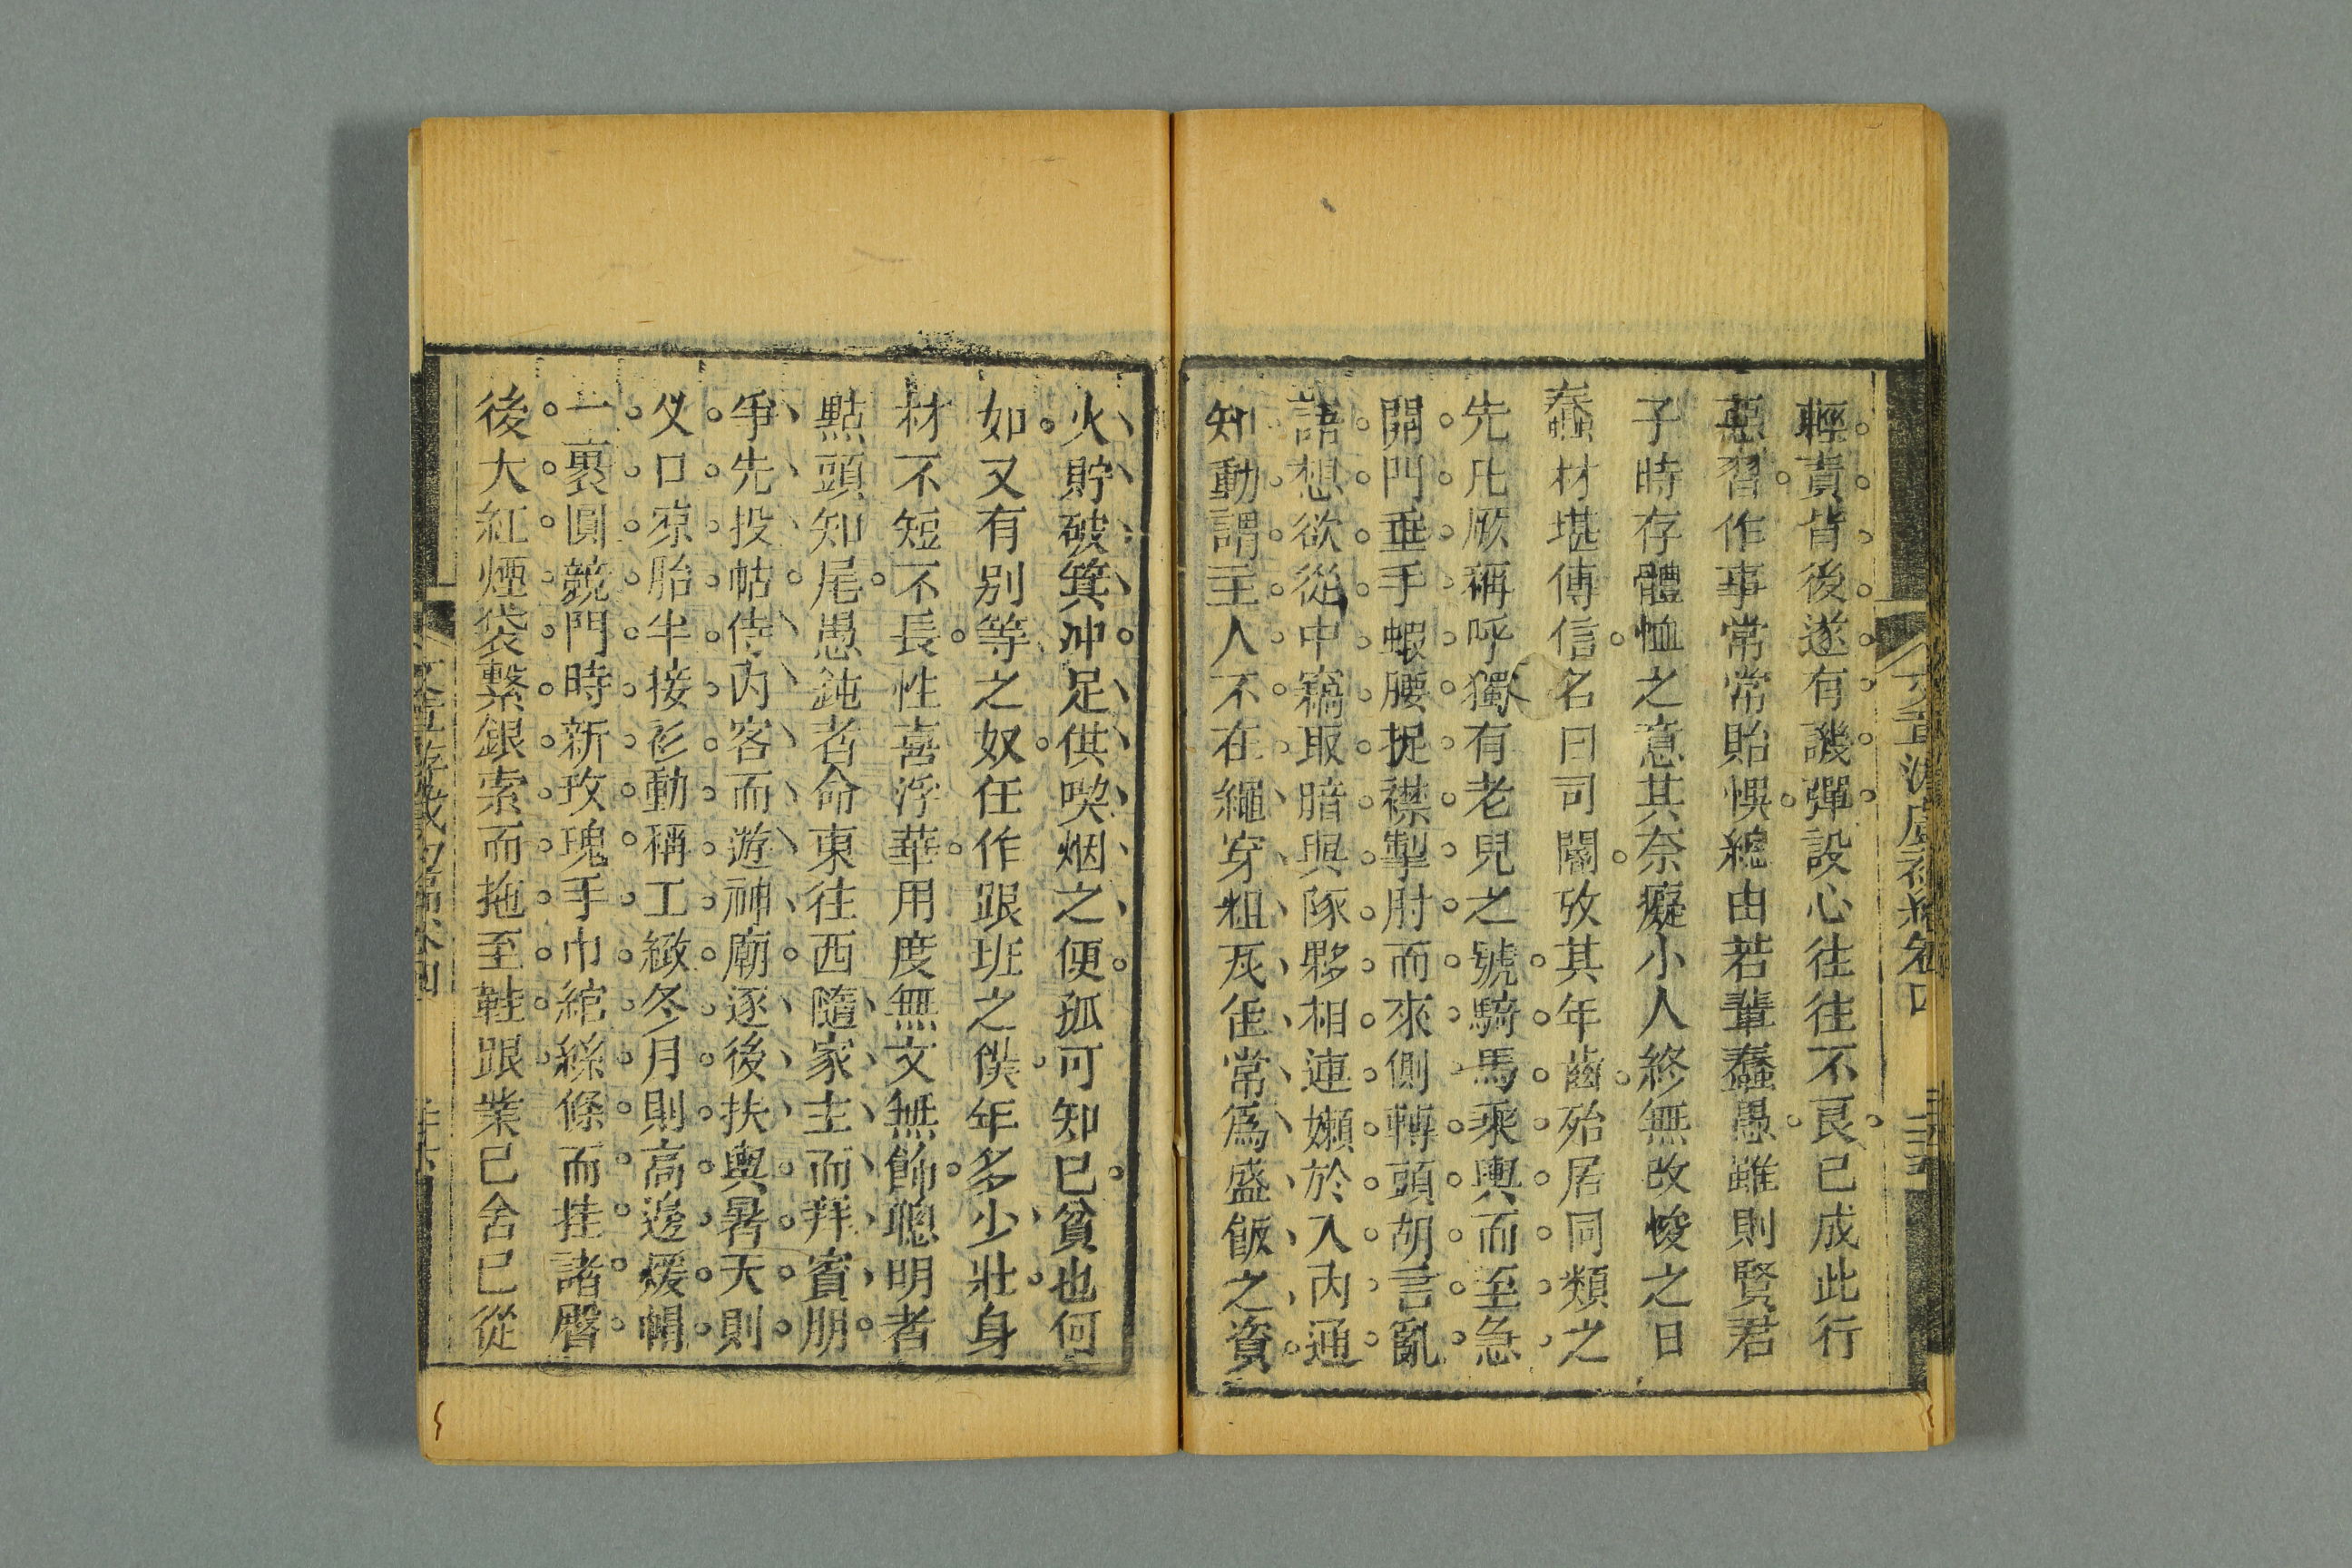 輕責背後遂有譏彈設心往往不良已成此行
惡習作事常常貽悞總由若輩蠢愚雖則賢君
子時存體恤之意其奈癡小人終無改悛之日
蠢材堪傳信名曰司閽攷其年齒殆居同類之
先凡厥稱呼獨有老兒之號騎馬乘輿而至急
開門垂手蝦腰捉襟掣肘而來側轉頭胡言亂
語想欲從中竊取暗與隊夥相連嬾於入內通
知動謂主人不在繩穿粗灰缶常爲盛飯之資
火貯破箕冲足供喫烟之便孤可知已貧也何
如又有别等之奴任作跟班之僕年多少壯身
材不短不長性喜浮華用度無文無飾聰明者
點頭知尾愚鈍者命東往西隨家主而拜賓朋
爭先投帖侍內客而遊神廟逐後扶輿暑天則
叉口凉胎半接衫動稱工緻冬月則高邊煖帽
一裹圓競門時新玫瑰手巾綰絲條而挂諸臀
後大紅煙袋繫銀索而拖至鞋跟業已舍已從